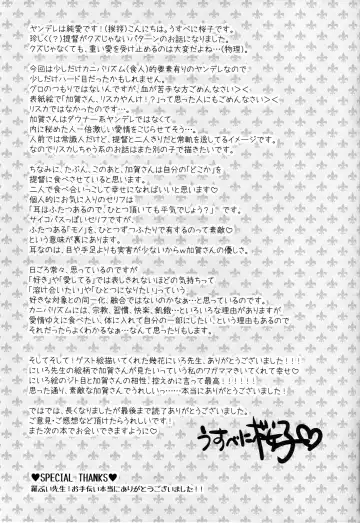 ヤンデレは純愛です!(挨拶)こんにちは。うすべに桜子です。
珍しく(?)提督がクズじゃないパターンのお話になりました。
クズじゃなくても、重い愛を受け止めるのは大変だよね…(物理)。
今回は少しだけカニバリズム(食人)的要素有りのヤンデレなので
少しだけハード目だったかもしれません。
グロのつもりではないんですが、血が苦手な方ごめんなさい><
表紙絵で「加賀さん、リスカやんけ!?」って思った人にもごめんなさい><
リスカではなかったのです…。
加賀さんはダウナー系ヤンデレではなくて
内に秘めた人一倍激しい愛情をこじらせてそう…。
人前では常識人だけど、提督と二人きりだと常軌を逸してるイメージです。
なのでリスカしちゃう系のお話はまた別の子で描きたいです。
ちなみに、たぶん、このあと、加賀さんは自分の「どこか」を
提督に食べさせていると思います。
二人で食べ合いっこして幸せになればいいと思います♡
個人的にお気に入りのセリフは
「耳はふたつあるので、ひとつ頂いても平気でしょう?」です。
サイコパスっぽいセリフですが、
ふたつある「モノ」を、ひとつずつふたりで有するのって素敵♡
という意味が裏にあります。
耳なのは、目や手足よりも実害が少ないからw加賀さんの優しさ。
日ごろ常々、思っているのですが
「好き」や「愛してる」では表しきれないほどの気持ちって
「溶け合いたい」や「ひとつになりたい」っていう
好きな対象との同一化、融合ではないのかなぁ…と思っているのです。
カニバリズムには、宗教、習慣、快楽、飢餓…といろいろな理由がありますが
愛情ゆえに食べたい、体に入れて自分の一部にしたい、という理由もあるので
それだったらよくわかるなぁ…なんて思ったりもします。
そしてそして!ゲスト絵描いてくれた幾花にいろ先生、ありがとうございました!!!
にいろ先生の絵柄で加賀さんが見たいっていう私のワガママきいてくれて幸せ♡
にいろ絵のジト目と加賀さんの相性、控えめに言って最高!!!!!!
思った通り、素敵な加賀さんでうれしいっ………本当にありがとうございました!
ではでは、長くなりましたが最後まで読了ありがとうございました。
ご意見・ご感想など頂けたらうれしいです!
また次の本でお会いできますように♡
うすべに桜子♡
♥SPECIAL THANKS♥
先生!お手伝い本当にありがとうございました!!